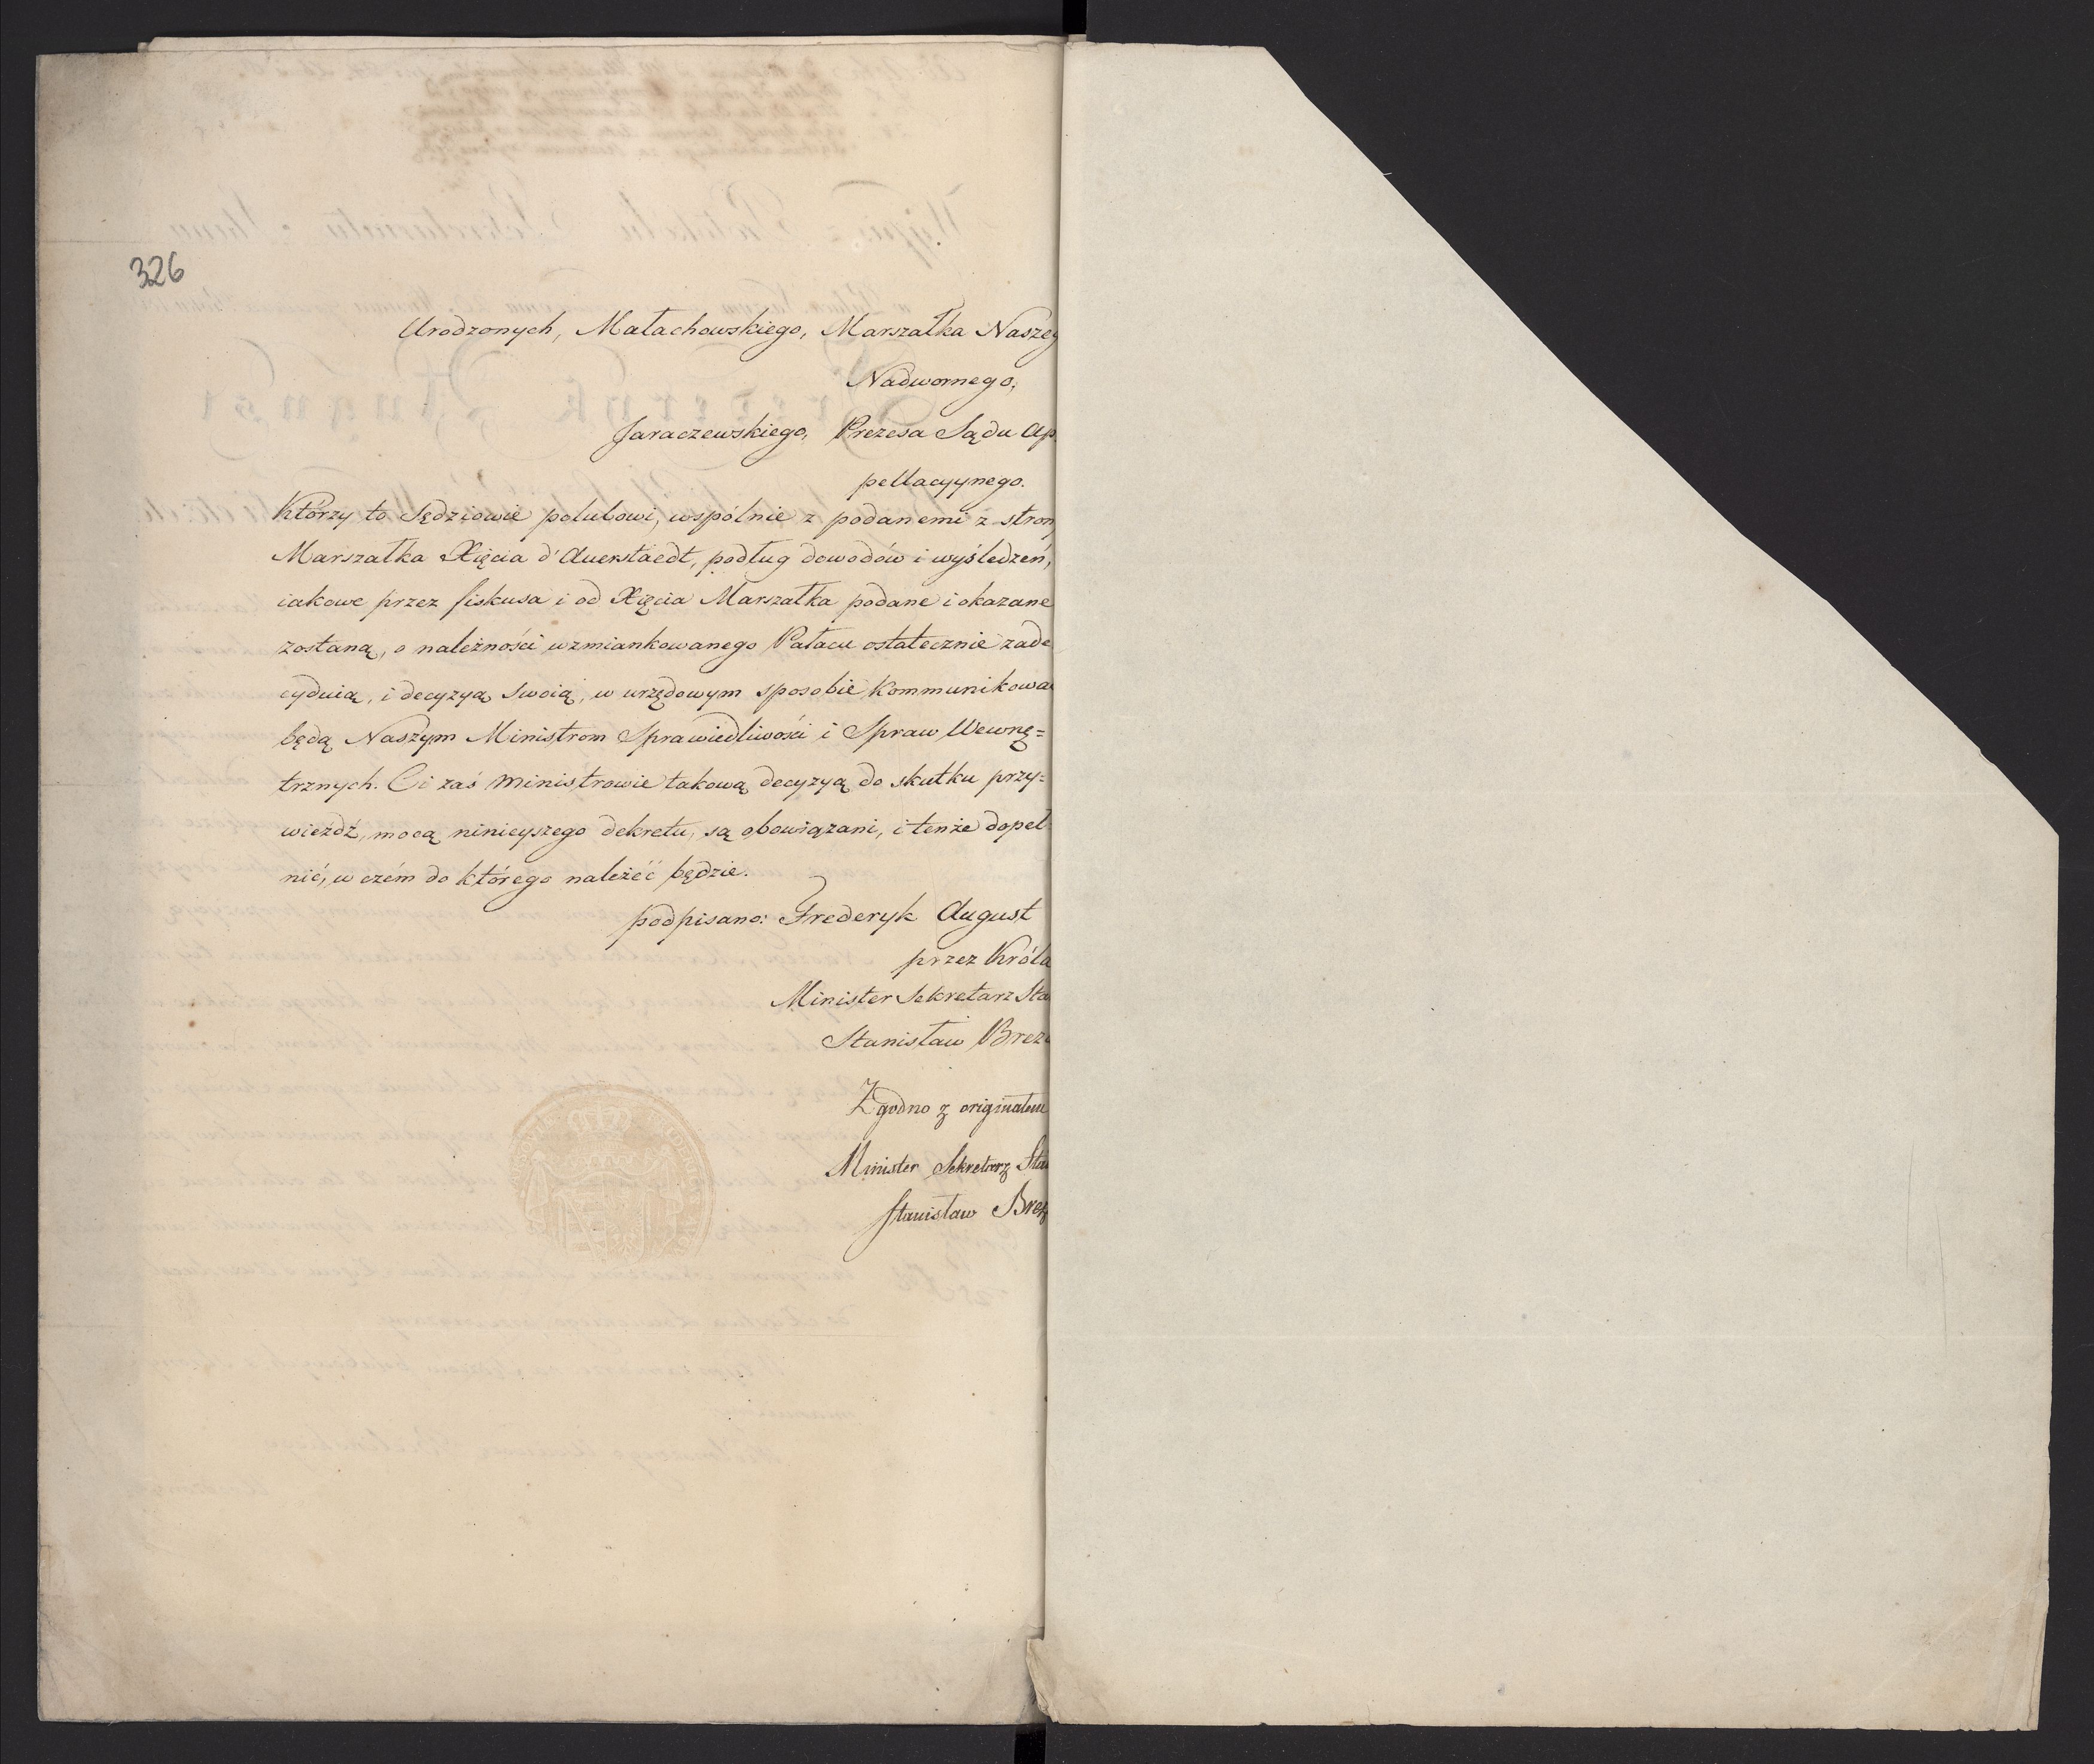 326
Urodzonych, Małachowskiego, Marszałka Naszeg
Nadwornego,
Jaraczewskiego, Prezesa Sądu Ap
pellacyynego.
Którzy to Sędziowie polubowi, wspólnie z podanemi z stron
Marszałka Xięcia d'Auerstaedt, podług dowodów i wyśledzeń,
iakowe przez fiskusa i od Xięcia Marszałka podane i okazane
zostaną, o należności wzmiankowanego Pałacu ostatecznie zade
cyduią, i decyzyą swoią, w urzędowym sposobie kommunikowa
będą Naszym Ministrom Sprawiedliwości i Spraw Wewnę=
trznych. Ci zaś Ministrowie takową decyzyą do skutku przy=
wieźdź, mocą ninieyszego dekretu, są obowiązani, i tenże dopeł
nić, w czém do którego należéć będzie.
podpisano: Frederyk August
przez Króla
Minister Sekretarz Sta
Stanisław Brez
Zgodno z originałem
Minister Sekretarz Sta
Stanisław Brez